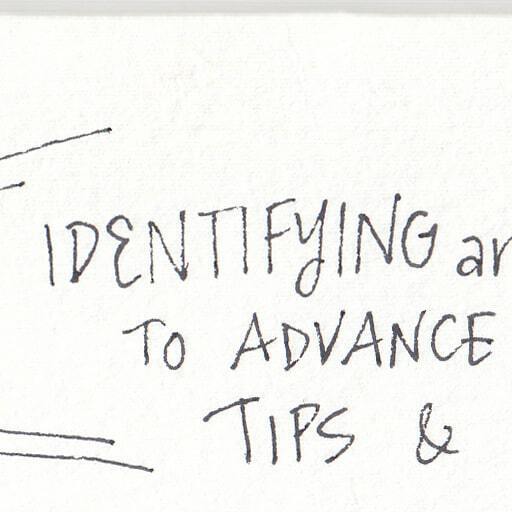 IDENTIFYING
TO ADVANCE
TIPS &